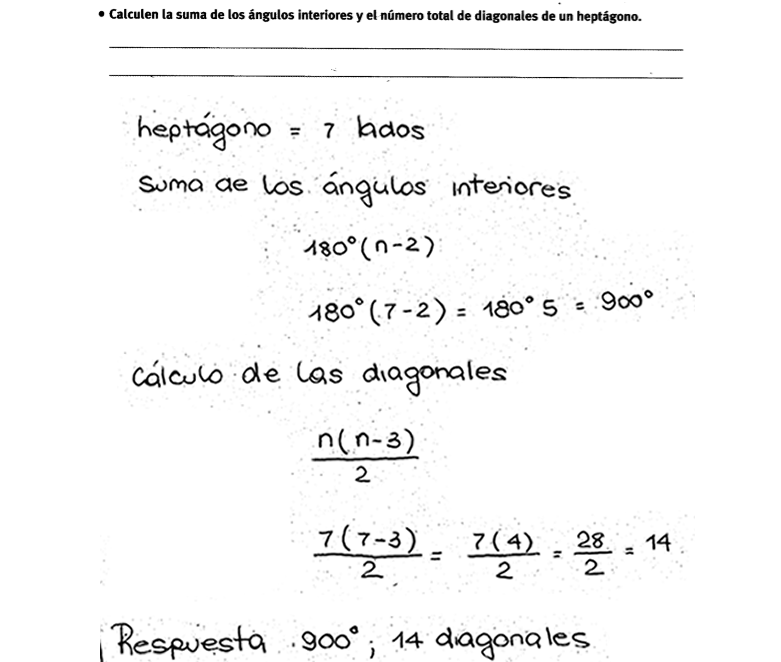 • Calculen la suma de los ángulos interiores y el número total de diagonales de un heptágono.
heptágono = 7 lados
Suma de los ángulos interiores
180°(n-2)
180°(7-2) = 180° 5 = 900°
Cálculo de las diagonales
n(n-3)/2
7(7-3)/2 = 7(4)/2 = 28/2 = 14
Respuesta 900°; 14 diagonales